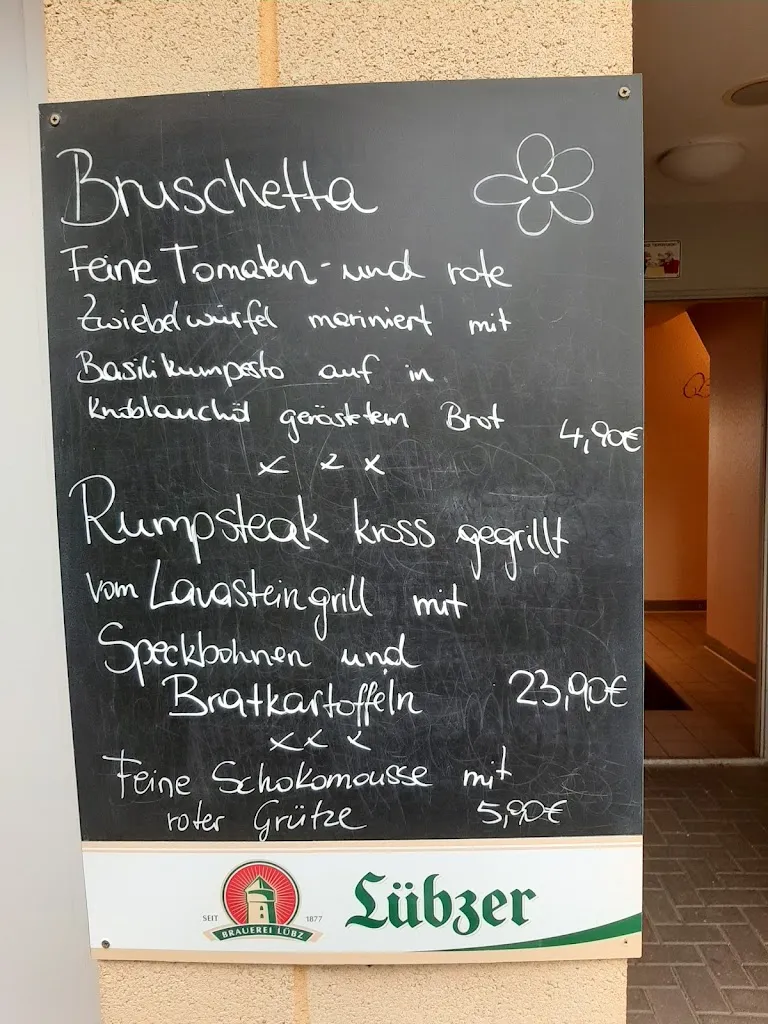 Bruschetta
Feine Tomaten- und rote
Zwiebelwürfel mariniert mit
Basilikumpesto auf in
Knoblauchöl geröstetem Brot 4,90€
x x x
Rumpsteak kross gegrillt
vom Lavasteingrill mit
Speckbohnen und
Bratkartoffeln 23,90€
x x x
Feine Schokomousse mit
roter Grütze 5,90€
SEIT 1877
BRAUEREI LÜBZ
Lübzer